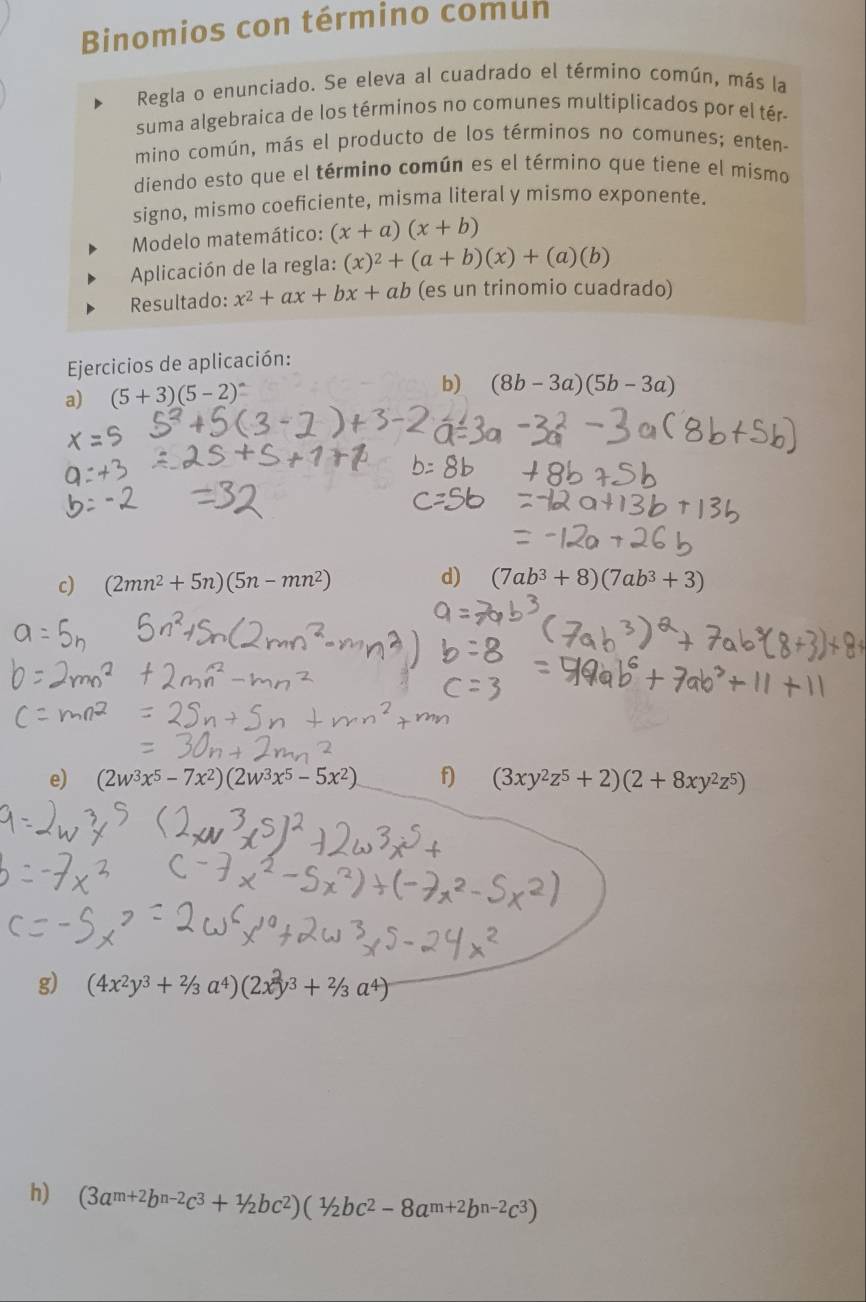 Binomios con término común
Regla o enunciado. Se eleva al cuadrado el término común, más la
suma algebraica de los términos no comunes multiplicados por el tér-
mino común, más el producto de los términos no comunes; enten-
diendo esto que el término común es el término que tiene el mismo
signo, mismo coeficiente, misma literal y mismo exponente.
Modelo matemático: (x + a) (x + b)
Aplicación de la regla: (x)² + (a + b)(x) + (a)(b)
Resultado: x² + ax + bx + ab (es un trinomio cuadrado)
Ejercicios de aplicación:
a) (5 + 3)(5 − 2)
x = 5 5² + 5(3 - 2) + 3 - 2
a = +3 = 25 + 5 + 1 + 1
b = -2 = 32
b) (8b − 3a)(5b − 3a)
a = 3a -3a² - 3a(8b + 5b)
b = 8b + 8b + 5b
c = 5b = -12a + 13b + 13b
= -12a + 26b
c) (2mn² + 5n)(5n − mn²)
a = 5n 5n² + 5n(2mn² - mn²)
b = 2mn² + 2mn² - mn²
c = mn² = 25n + 5n + mn² + mn
= 30n + 2mn²
d) (7ab³ + 8)(7ab³ + 3)
a = 7ab³ (7ab³)² + 7ab³(8 + 3) + 8+
b = 8
c = 3 = 49ab⁶ + 7ab³ + 11 + 11
e) (2w³x⁵ − 7x²)(2w³x⁵ − 5x²)
a = 2w³x⁵ (2w³x⁵)² + 2w³x⁵ +
b = -7x² (-7x² - 5x²) + (-7x² - 5x²)
c = -5x² = 2w⁶x¹⁰ + 2w³x⁵ - 24x²
f) (3xy²z⁵ + 2)(2 + 8xy²z⁵)
g) (4x²y³ + ⅔ a⁴)(2x²y³ + ⅔ a⁴)
h) (3aᵐ⁺²bⁿ⁻²c³ + ½bc²)( ½bc² − 8aᵐ⁺²bⁿ⁻²c³)